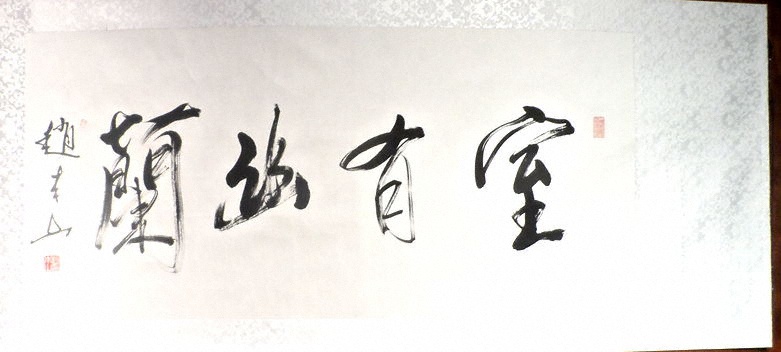 室有幽蘭
趙春山